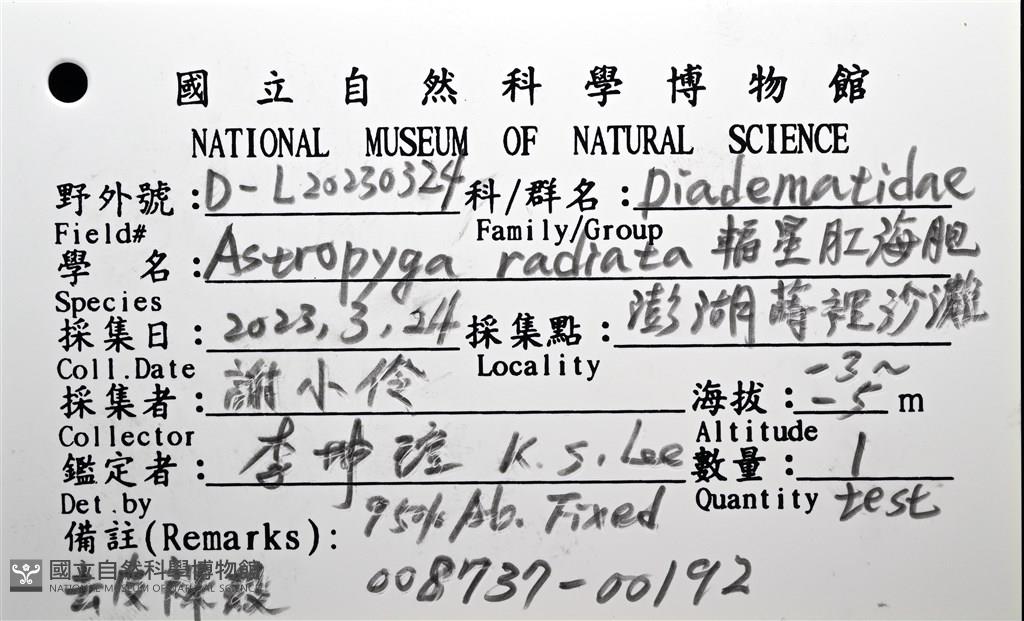 國立自然科學博物館
NATIONAL MUSEUM OF NATURAL SCIENCE
野外號: D-L20230324 科/群名: Diadematidae
Field# Family/Group
學名: Astropyga radiata 輻星肛海胆
Species
採集日: 2023,3,24 採集點: 澎湖蒔裡沙灘
Coll.Date Locality
採集者: 謝小伶 海拔: -3~-5 m
Collector Altitude
鑑定者: 李坤瑄 K.S. Lee 數量: 1 test
Det.by Quantity
備註(Remarks): 95% Ab. Fixed
008737-00192
國立自然科學博物館
NATIONAL MUSEUM OF NATURAL SCIENCE